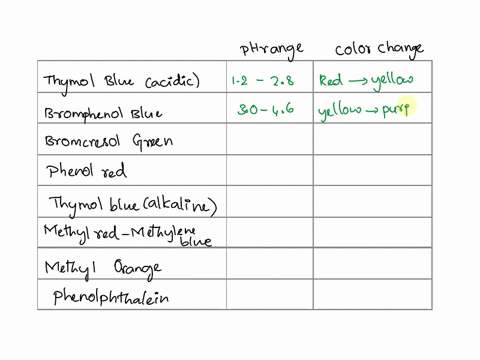 pH range color change
Thymol Blue (acidic) 1.2 - 2.8 Red → yellow
Bromphenol Blue 3.0 - 4.6 yellow → purp
Bromcresol Green
Phenol red
Thymol blue (alkaline)
Methyl red - Methylene
blue
Methyl Orange
phenolphthalein